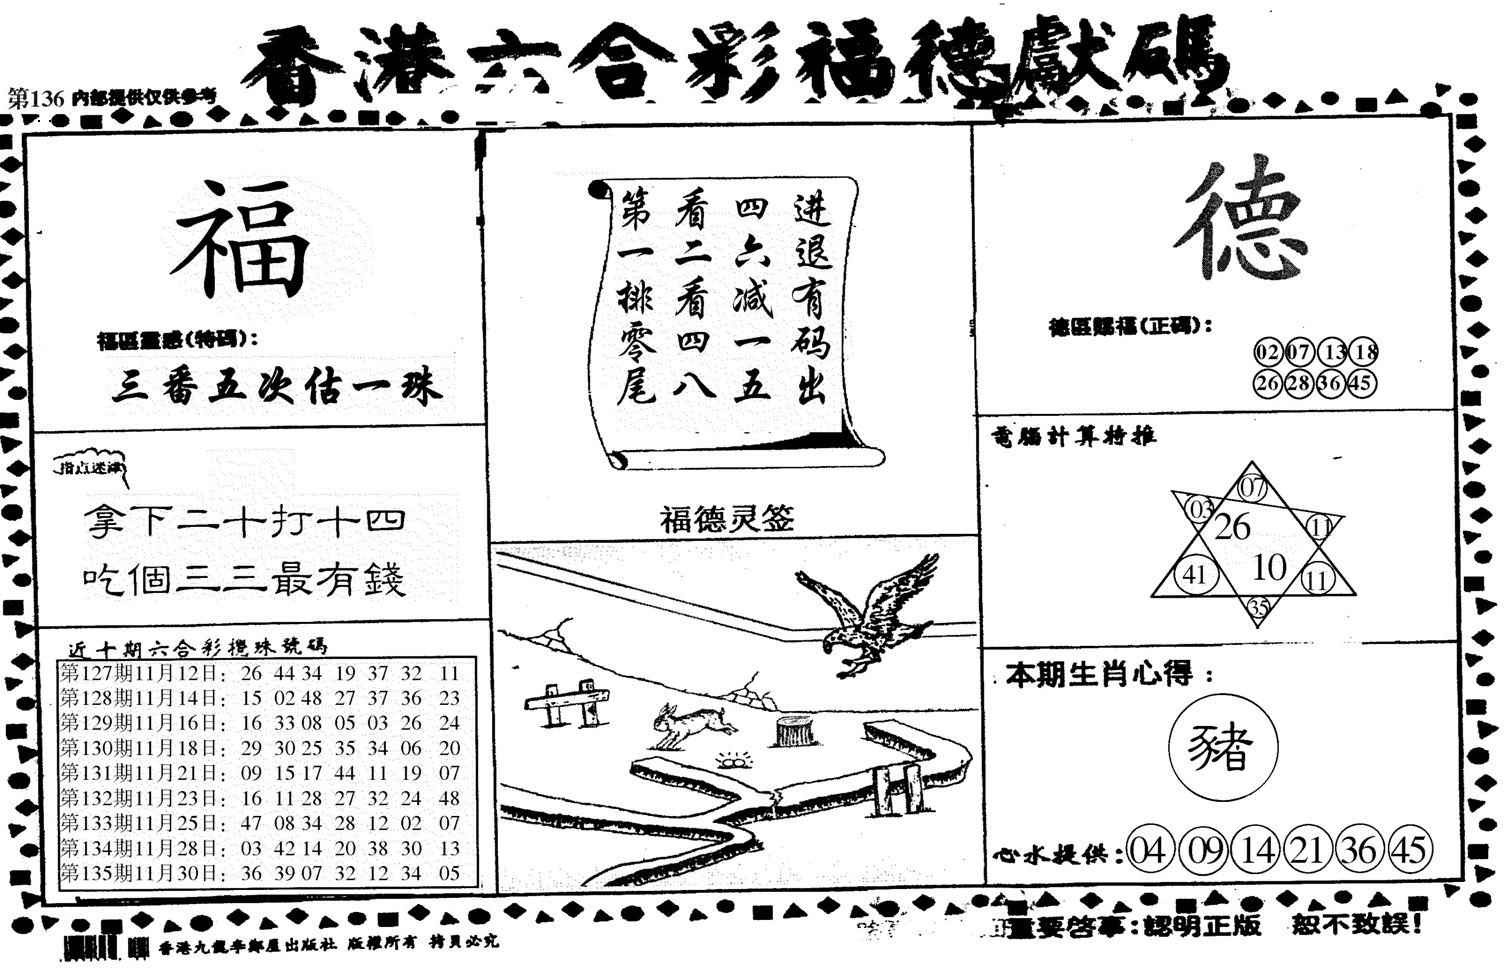 香港六合彩福德獻碼
第136 内部提供仅供参考
福
福區靈感(特碼):
三番五次估一珠
指点迷津
拿下二十打十四
吃個三三最有錢
近十期六合彩攪珠號碼
第127期11月12日: 26 44 34 19 37 32 11
第128期11月14日: 15 02 48 27 37 36 23
第129期11月16日: 16 33 08 05 03 26 24
第130期11月18日: 29 30 25 35 34 06 20
第131期11月21日: 09 15 17 44 11 19 07
第132期11月23日: 16 11 28 27 32 24 48
第133期11月25日: 47 08 34 28 12 02 07
第134期11月28日: 03 42 14 20 38 30 13
第135期11月30日: 36 39 07 32 12 34 05
进退有码出
四六减一五
看二看四八
第一排零尾
福德灵签
德
德區賜福(正碼):
02 07 13 18
26 28 36 45
電腦計算特推
07
03
26
11
41
10
11
35
本期生肖心得:
豬
心水提供: 04 09 14 21 36 45
香港九龍李鄭屋出版社 版權所有 拷貝必究
重要啓事:認明正版 恕不致誤!